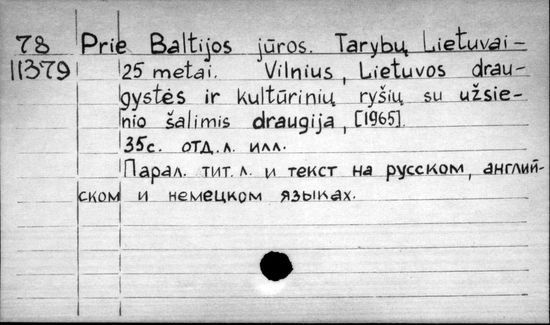 78 Prie Baltijos jūros. Tarybų Lietuvai-
11379 25 metai. Vilnius, Lietuvos drau-
gystės ir kultūrinių ryšių su užsie-
nio šalimis draugija, [1965].
35с. отд.л. илл.
Парал. тит. л. и текст на русском, англий-
ском и немецком языках.